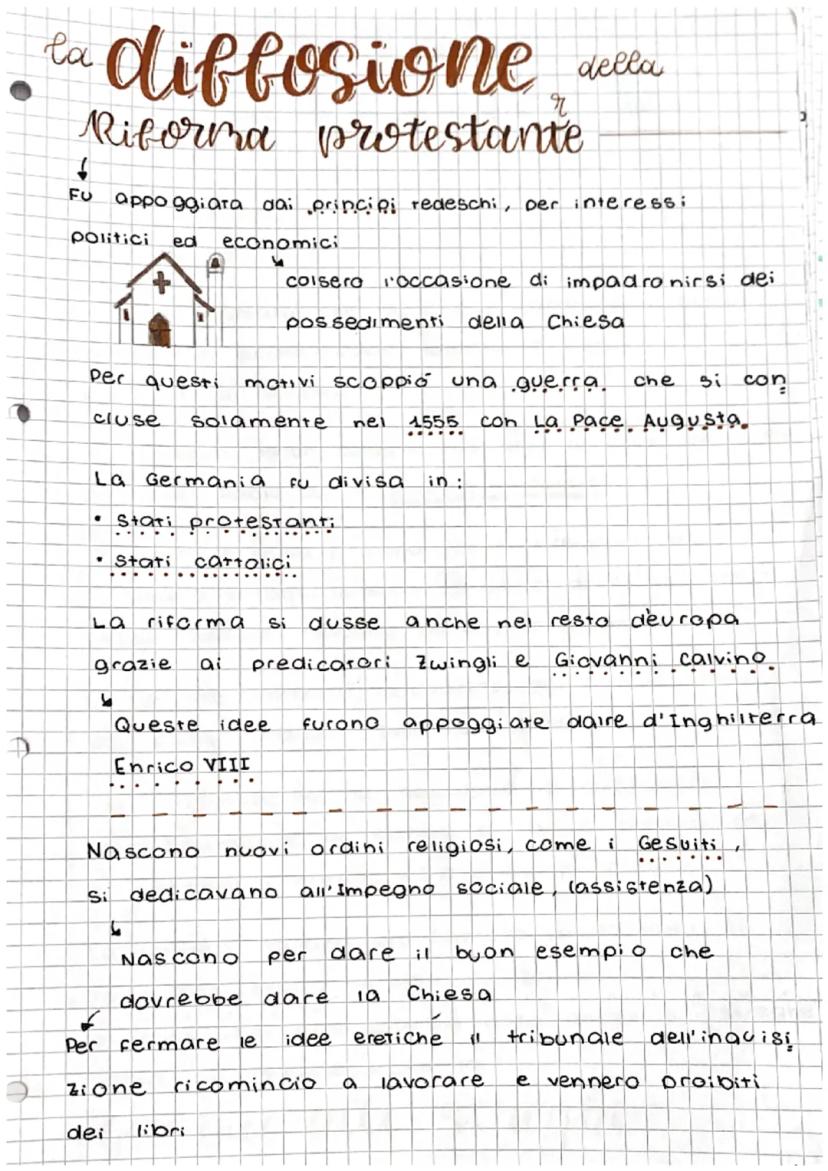 la diffusione della
Riforma protestante
Fu appoggiata dai principi tedeschi, per interessi
politici ed economici
colsero l'occasione di impadronirsi dei
possedimenti della Chiesa
Per questi motivi scoppiò una guerra. che si con
cluse solamente nel 1555 con La Pace Augusta.
La Germania fu divisa in:
• Stati protestanti
• Stati cattolici
La riforma si dusse anche nel resto d'europa
grazie ai predicatori Zwingli e Giovanni Calvino
Queste idee furono appoggiate dalre d'Inghilterra
Enrico VIII
Nascono nuovi ordini religiosi, come i Gesuiti,
si dedicavano all'Impegno sociale, (assistenza)
Nascono per dare il buon esempio che
dovrebbe dare la Chiesa
Per fermare le idee eretiche il tribunale dell'inquisi
zione ricominciò a lavorare e vennero proibiti
dei libri